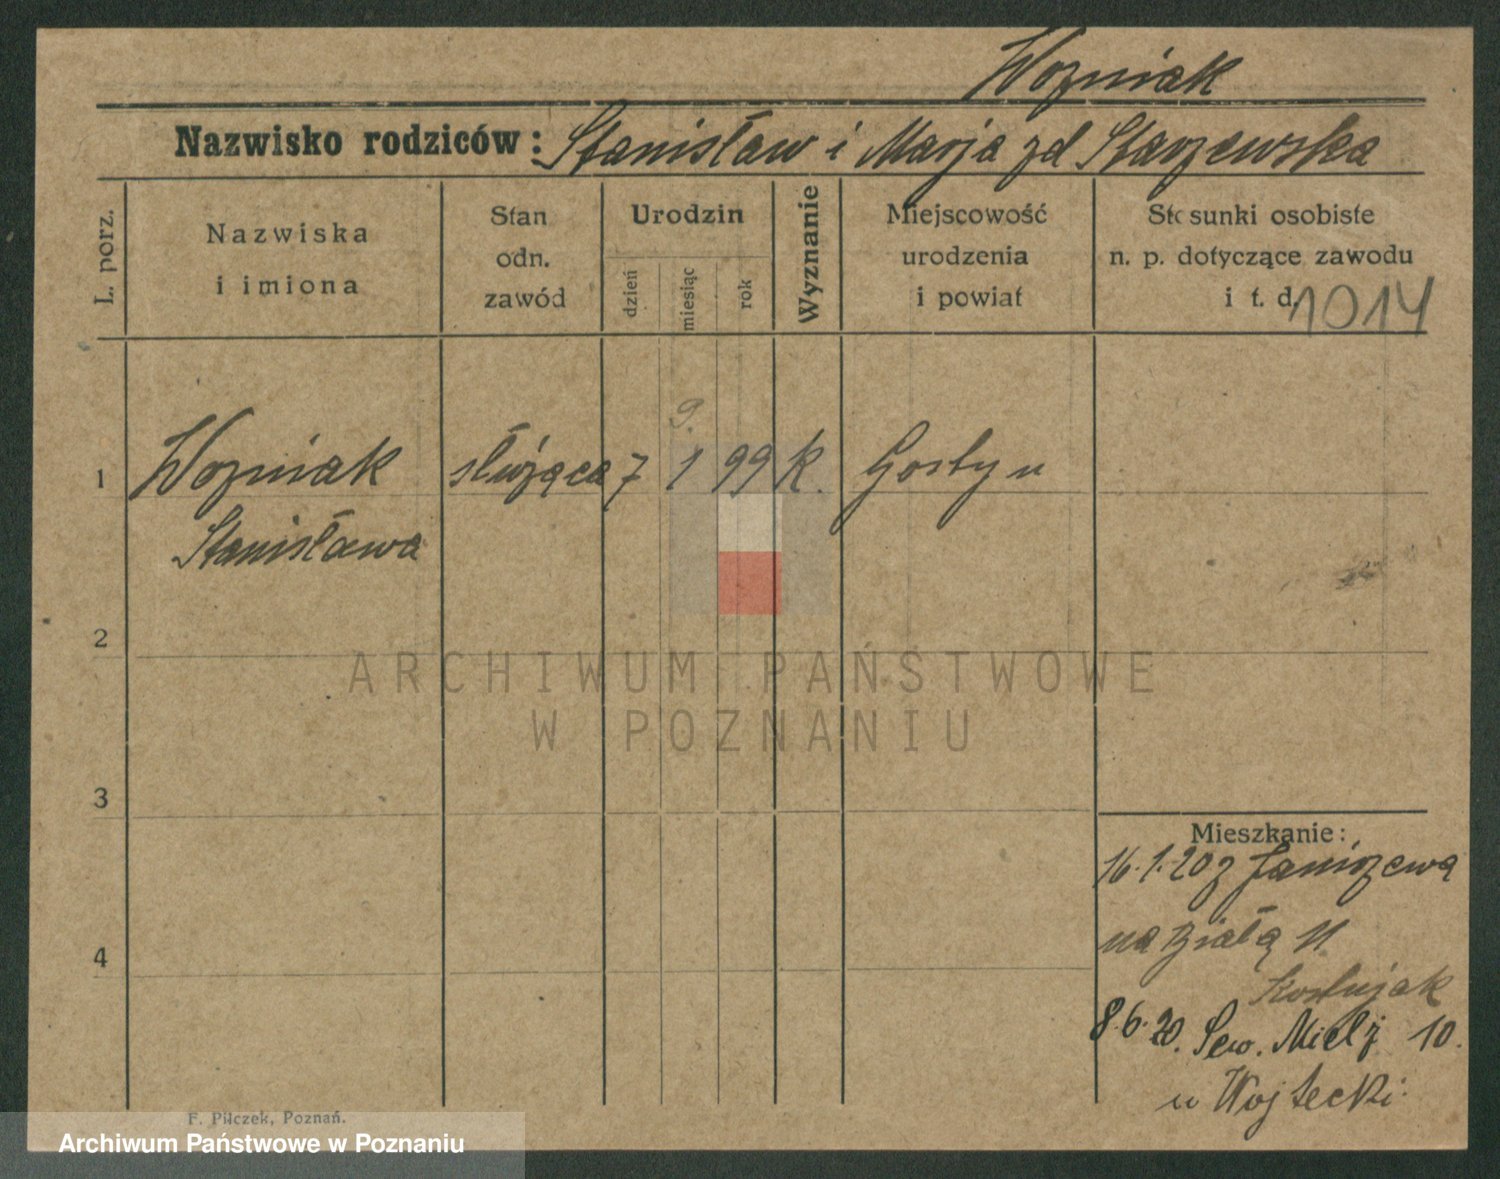 Wozniak
Nazwisko rodziców: Stanisław i Marja zd Starzewska
L. porz.
Nazwiska i imiona
Stan odn. zawód
Urodzin
dzień
miesiąc
rok
Wyznanie
Miejscowość urodzenia i powiat
Stosunki osobiste n. p. dotyczące zawodu i t. d.
1014
9.
1 Wozniak służąca 7 1 99 K. Gostyn
Stanisława
2
3
4
ARCHIWUM PAŃSTWOWE
W POZNANIU
Mieszkanie:
16.1.20 z Janiszewa
na Białą 11
8.6.20. Sew. Mielż 10.
u Wojtecki.
F. Pilczek, Poznań.
Archiwum Państwowe w Poznaniu